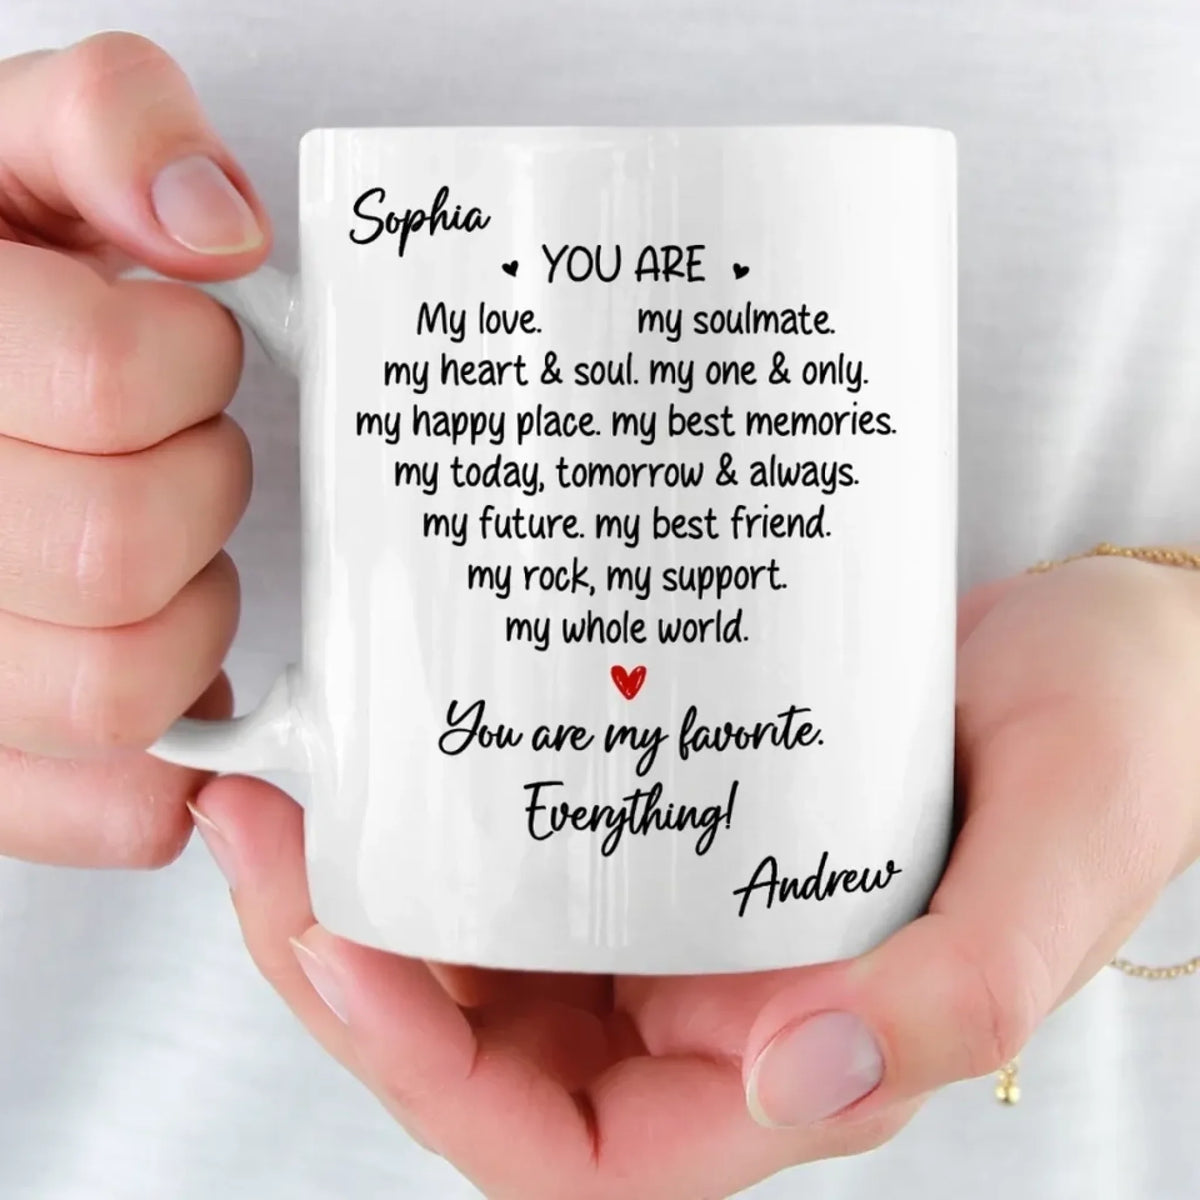 Sophia
YOU ARE
My love. my soulmate.
my heart & soul. my one & only.
my happy place. my best memories.
my today, tomorrow & always.
my future. my best friend.
my rock, my support.
my whole world.
You are my favorite.
Everything!
Andrew